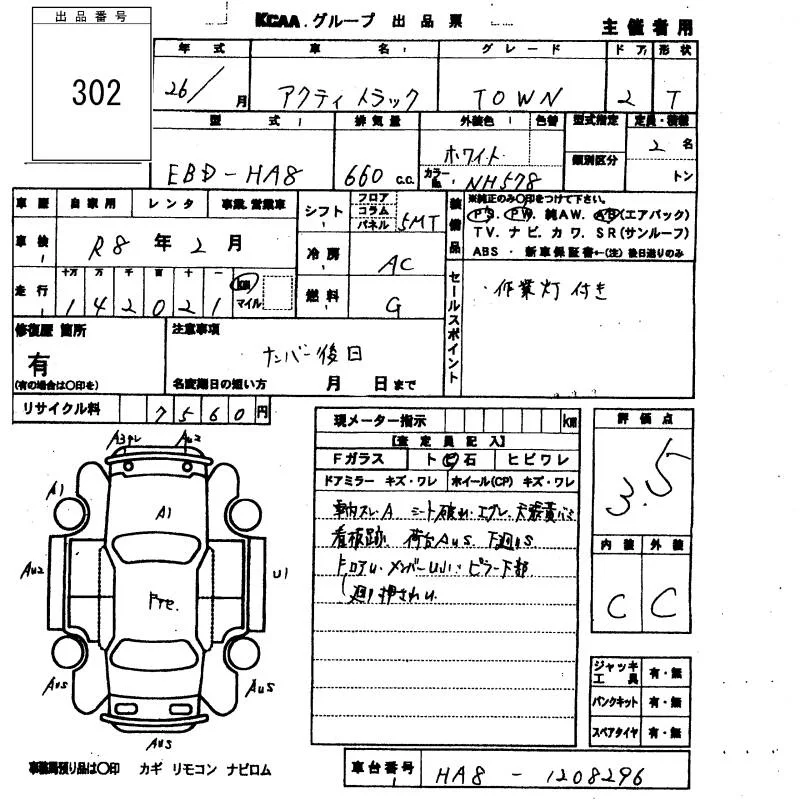 出品番号
302
KCAA.グループ 出品票
主催者用
年式 車名 グレード ドア 形状
26/ 月 アクティトラック TOWN 2 T
型式 排気量 外装色 色替 型式指定 定員・積載
EBD-HA8 660 c.c. ホワイト カラーNo. NH578 類別区分 2 名
トン
車歴 自家用 レンタ 事業.営業車
シフト フロア コラム パネル 5MT
装備品 ※純正のみ〇印をつけて下さい。
PS. PW. 純AW. AB(エアバック)
TV. ナビ. カワ. SR(サンルーフ)
ABS ・ 新車保証書←(注)後日送りのみ
車検 R8 年 2 月
冷房 AC
走行 十万 万 千 百 十 一
1 4 2 0 2 1 km マイル
燃料 G
セールスポイント
・作業灯付き
修復歴 箇所
有
(有の場合は〇印を)
注意事項
ナンバー後日
名変期日の短い方 月 日まで
リサイクル料 7560円
現メーター指示 km
【査定員記入】
Fガラス ト ビ 石 ヒビワレ
ドアミラー キズ・ワレ ホイール(CP) キズ・ワレ
車内スレA シート破れ.エグレ.天張黄バミ
看板跡. 荷台AuS. 下廻りS
FロアU.メンバーU小.ピラー下部
廻り押されU.
評価点
3.5
内装 外装
C C
ジャッキ工具 有・無
パンクキット 有・無
スペアタイヤ 有・無
Au2
A1
A1
Au2
U1
Fre.
AuS
AuS
AuS
事務局預り品は〇印 カギ リモコン ナビロム
車台番号 HA8 - 1208296